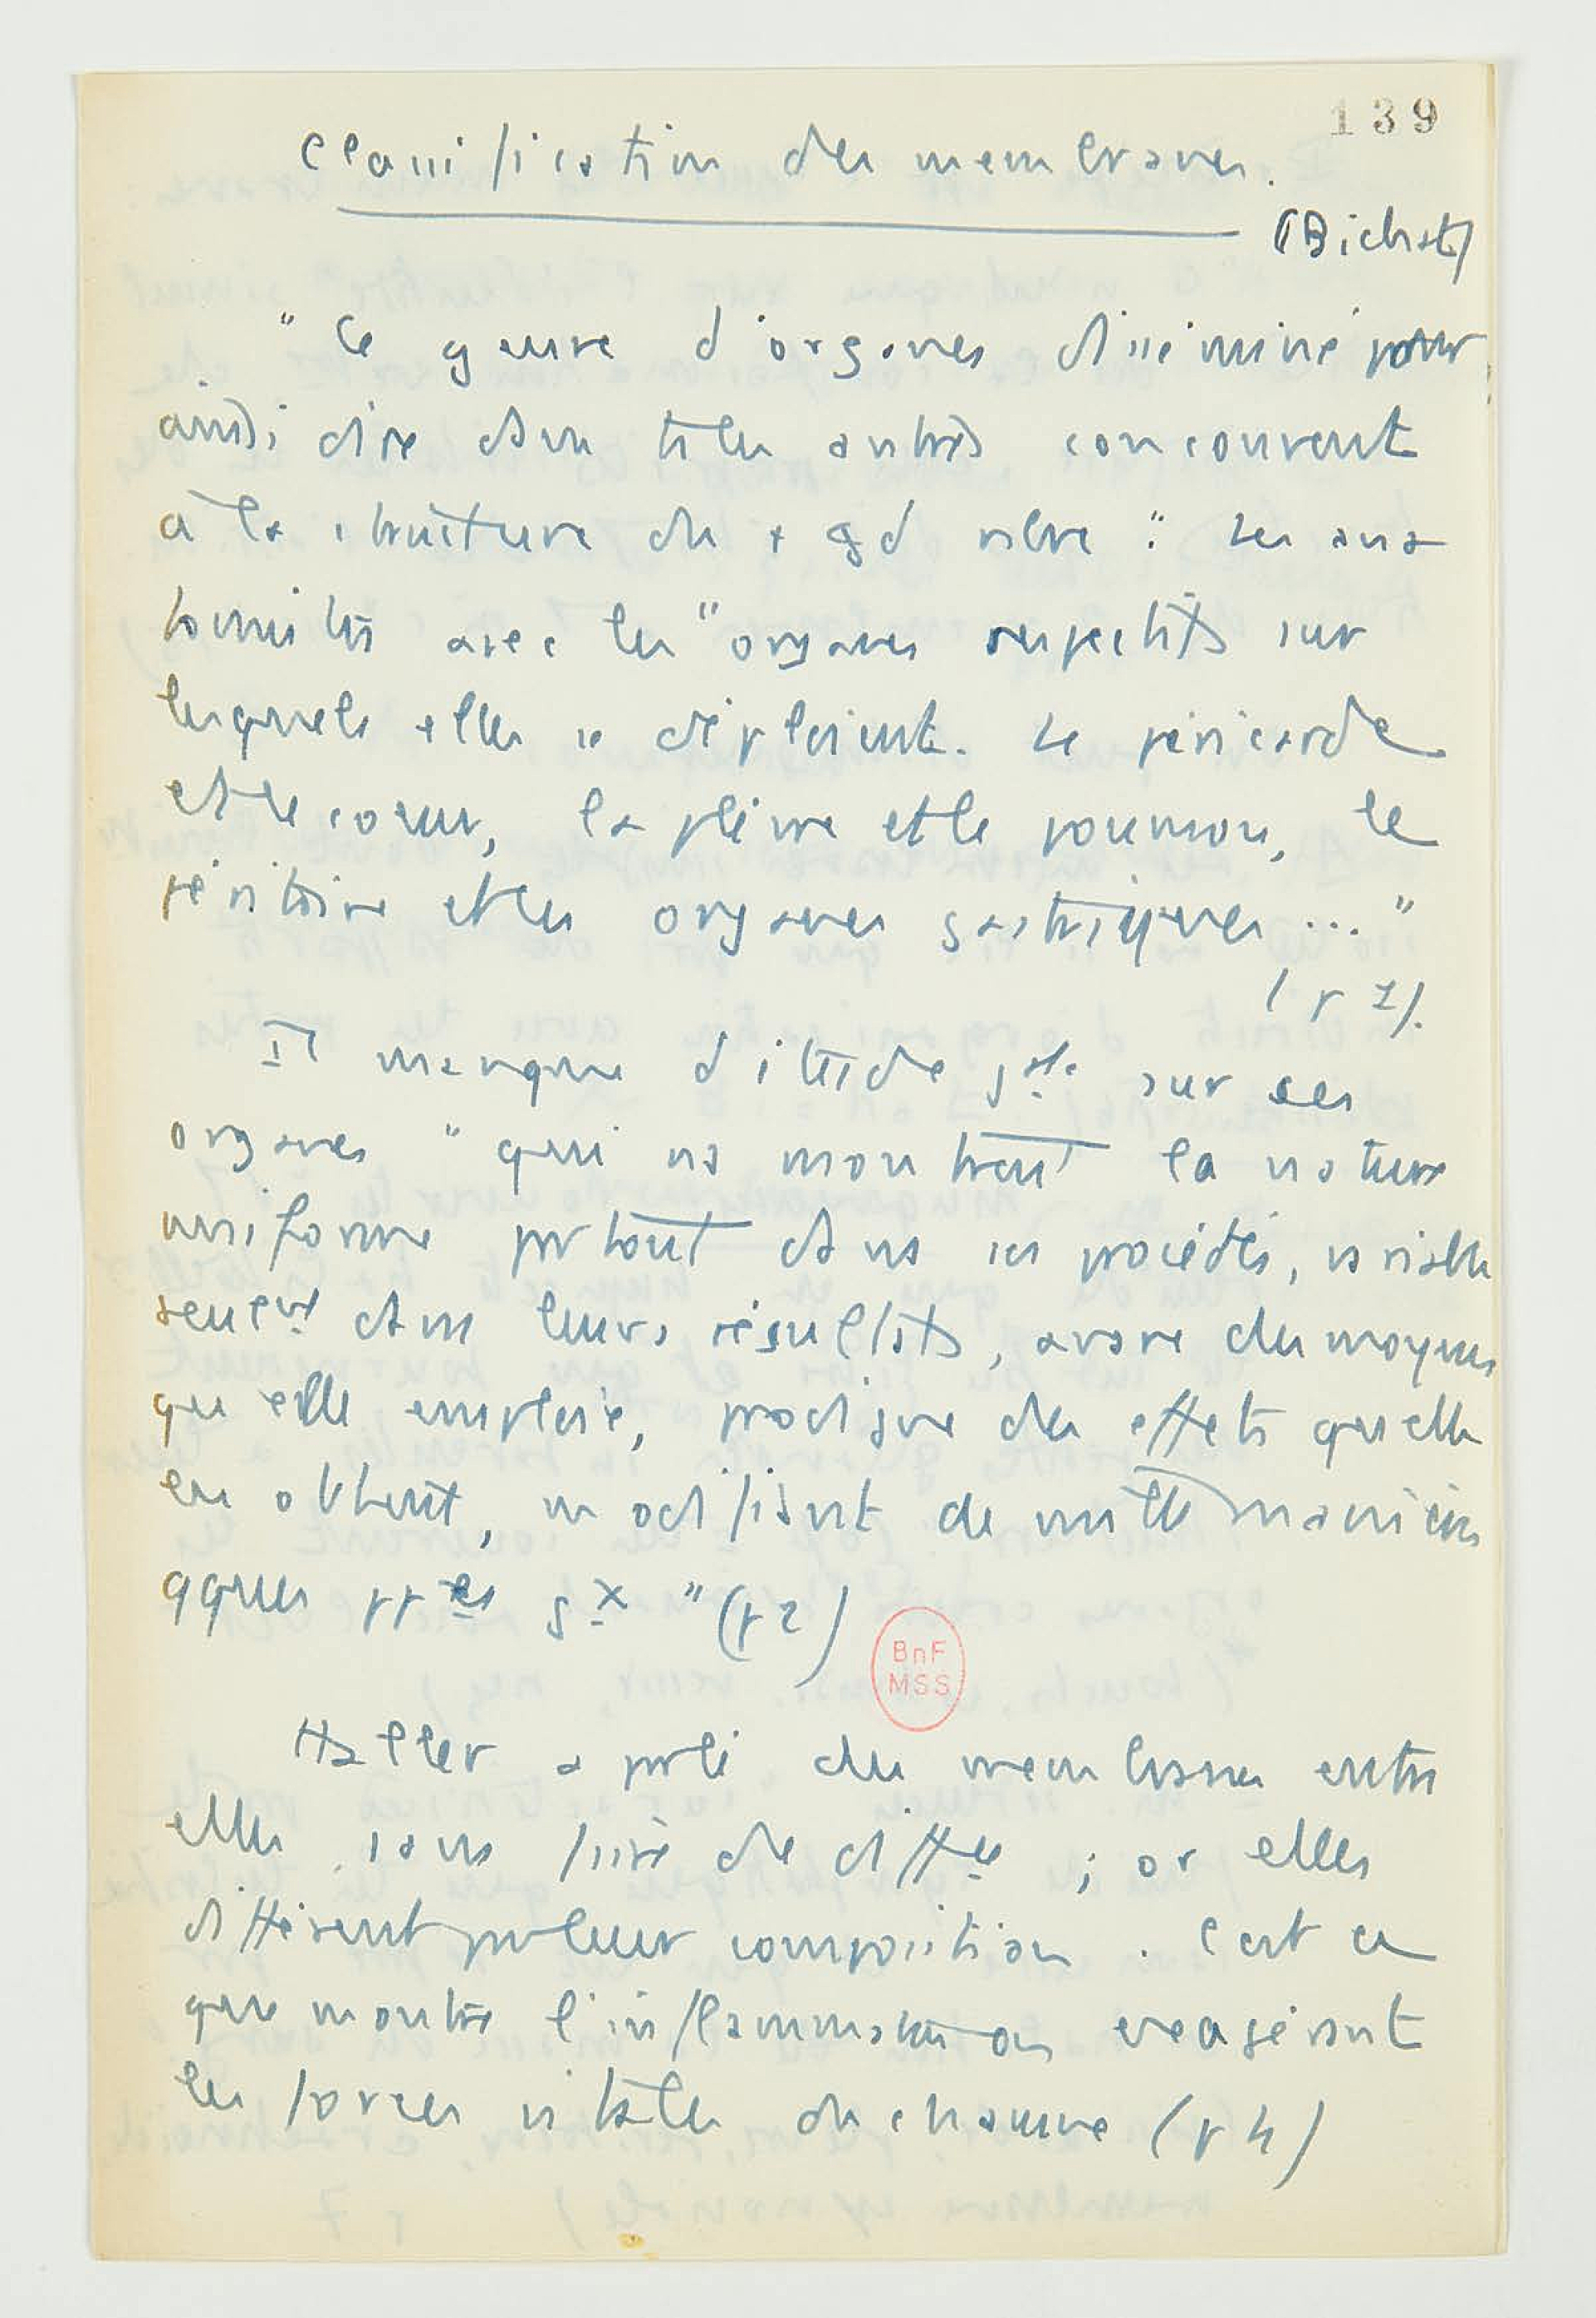 139
Classification des membranes.
(Bichat)
" Ce genre d'organes disséminé pour
ainsi dire dans tous les autres concourent
à la structure du + gd nbre ". Les ana
tomistes avec les " organes respectifs sur
lesquels elles se déploient. Le péricarde
et le coeur, la plèvre et le poumon, le
péritoine et les organes gastriques ... "
(p 1).
Il manque d'étude gale sur ces
organes " qui ns montrent la nature
uniforme partout ds ses procédés, variable
seulemt ds leurs résultats, avare des moyens
qu'elle emploie, prodigue des effets qu'elle
en obtient, modifiant de mille manières
qques ppes gx " (p 2)
BnF
MSS
Haller a parlé des membranes entre
elles sans faire de diffce ; or elles
diffèrent par leur composition. C'est ce
que montre l'inflammation exagérant
les forces vitales de chacune (p 4)